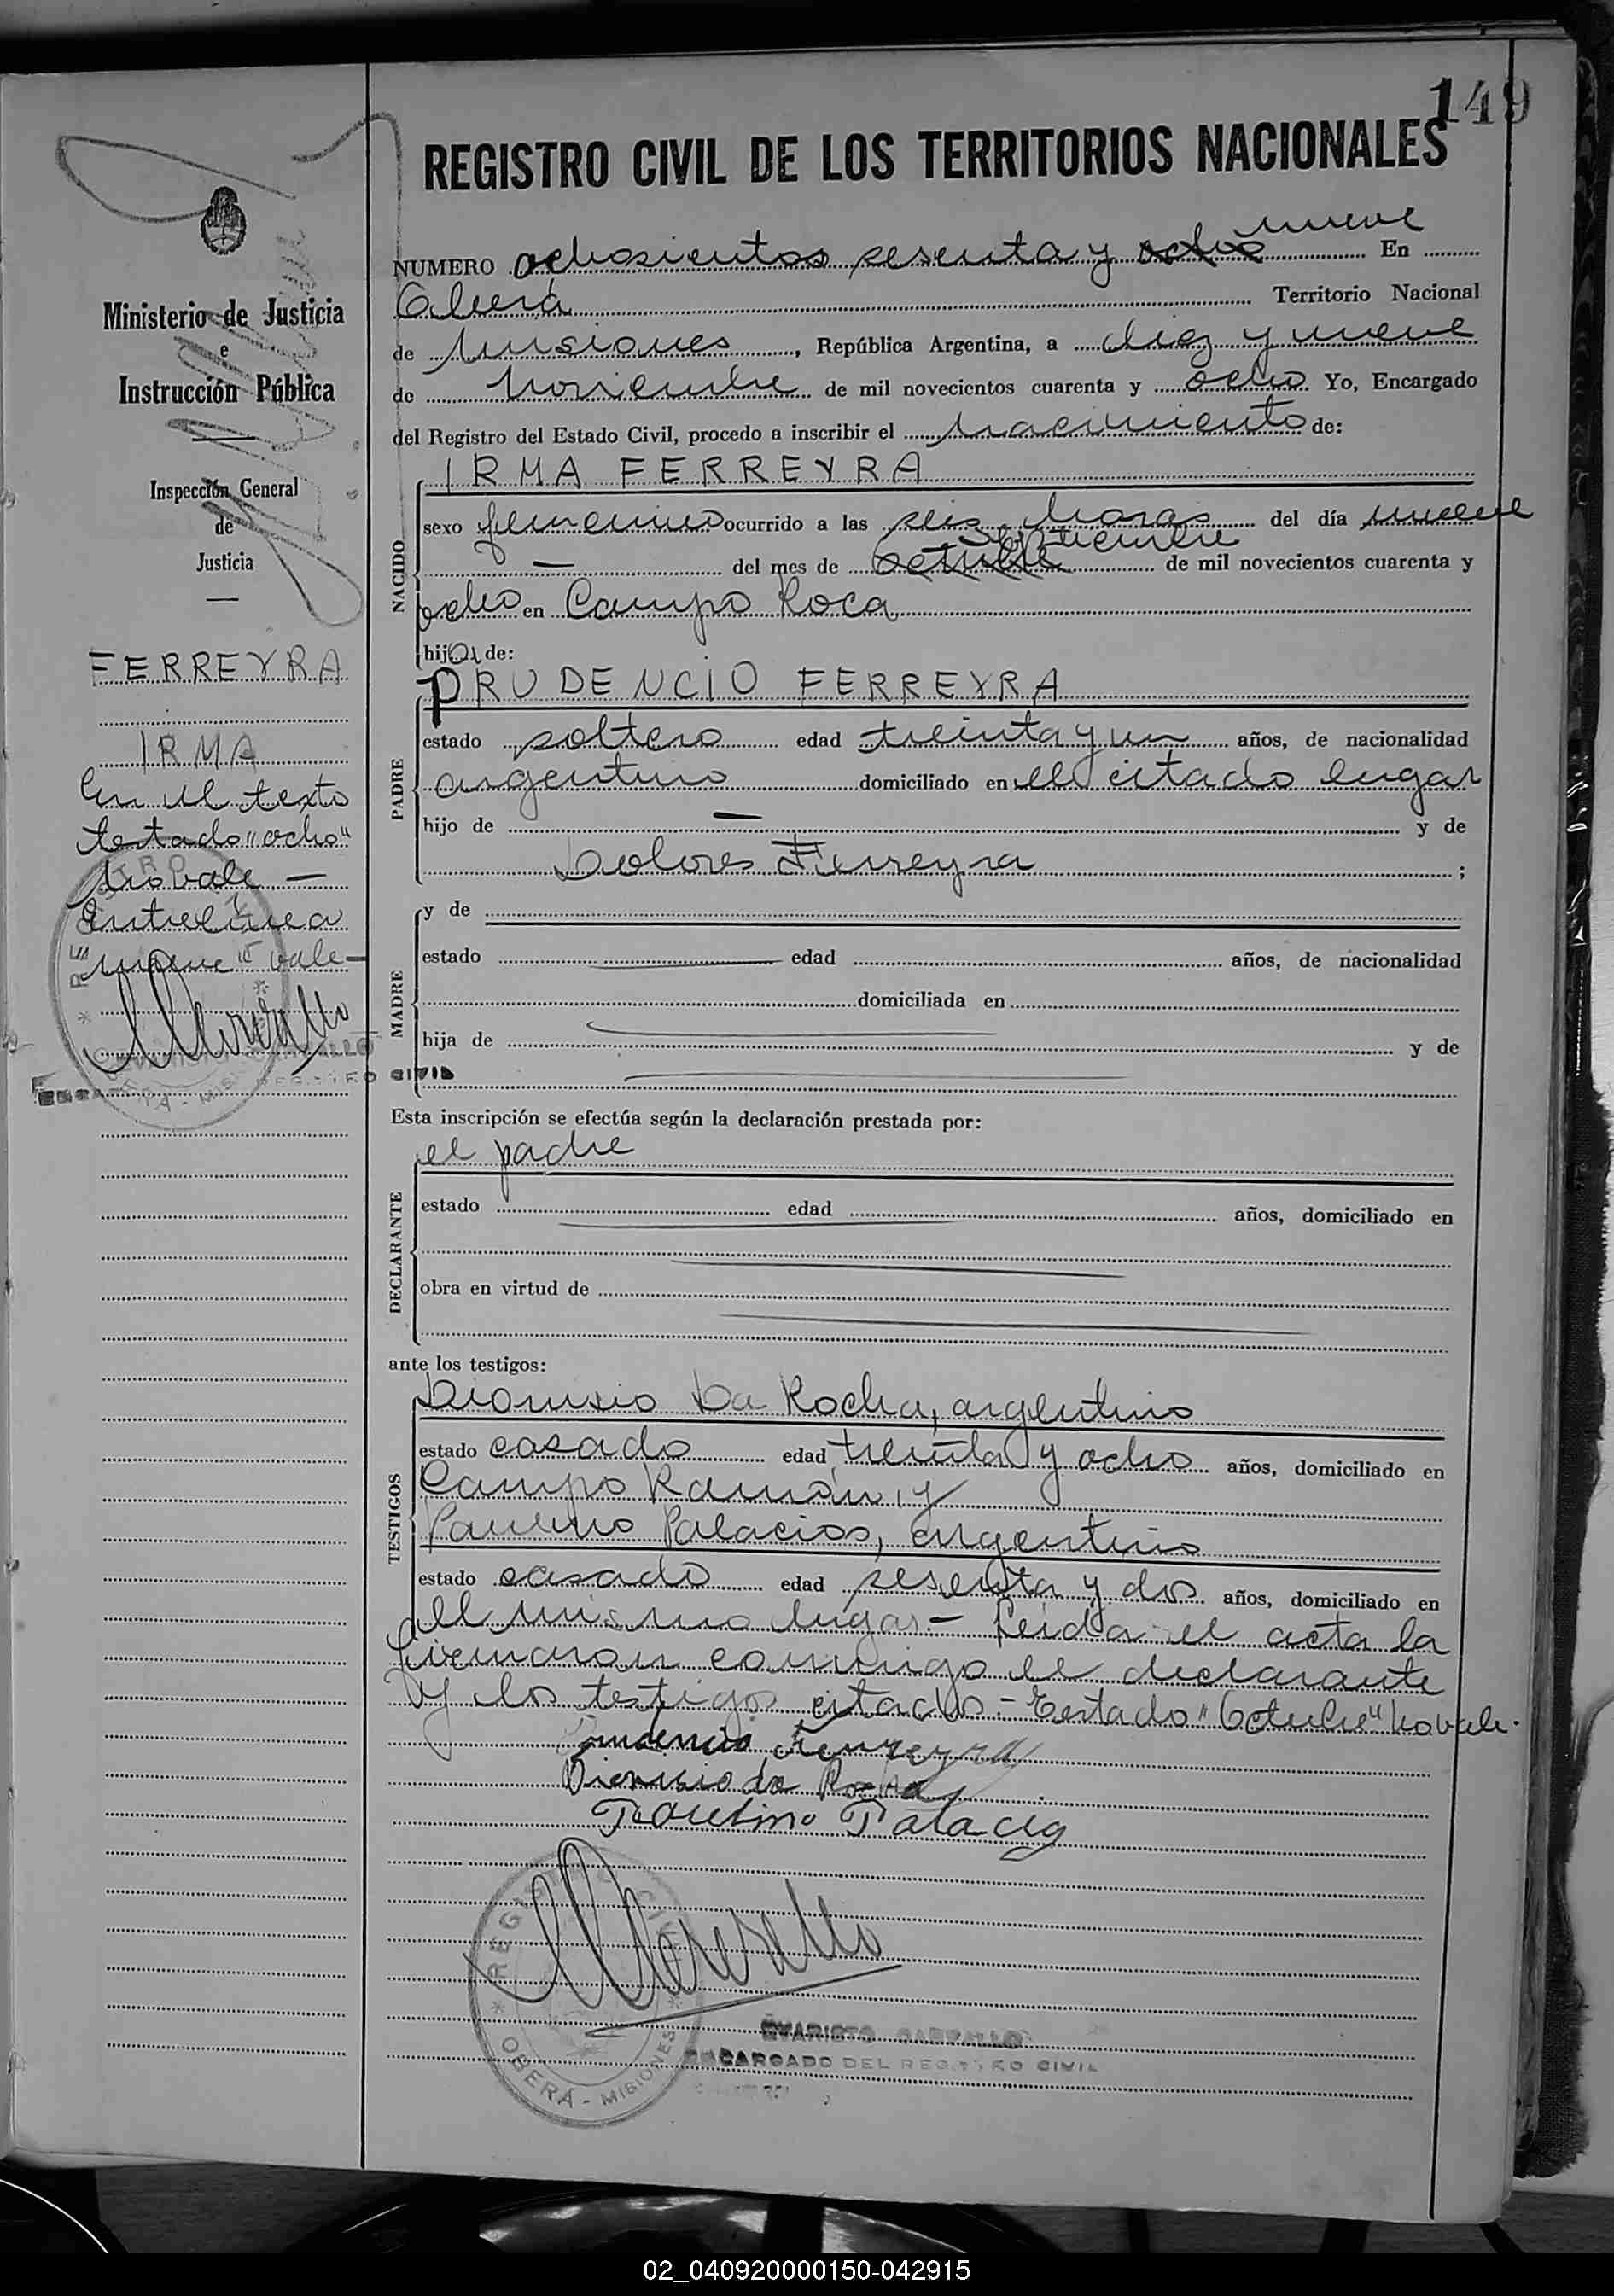 149
REGISTRO CIVIL DE LOS TERRITORIOS NACIONALES
Ministerio de Justicia
e
Instrucción Pública
Inspección General
de
Justicia
FERREYRA
IRMA
En el texto
testado "ocho"
no vale —
Entrelinea
"nueve" vale —
NUMERO ochosientos sesenta y ocho nueve En
Oberá Territorio Nacional
de Misiones, República Argentina, a diez y nueve
de Noviembre de mil novecientos cuarenta y ocho Yo, Encargado
del Registro del Estado Civil, procedo a inscribir el nacimiento de:
NACIDO
IRMA FERREYRA
sexo femenino ocurrido a las seis horas del día nueve
— del mes de Octubre Septiembre de mil novecientos cuarenta y
ocho en Campo Roca
hija de:
PADRE
PRUDENCIO FERREYRA
estado soltero edad treinta y un años, de nacionalidad
argentino domiciliado en el citado lugar
hijo de — y de
Dolores Ferreyra ;
MADRE
y de
estado edad años, de nacionalidad
domiciliada en
hija de y de
REGISTRO CIVIL
Esta inscripción se efectúa según la declaración prestada por:
DECLARANTE
el padre
estado edad años, domiciliado en
obra en virtud de
ante los testigos:
TESTIGOS
Dionisio Da Rocha, argentino
estado casado edad treinta y ocho años, domiciliado en
Campo Ramón, y
Paulino Palacios, argentino
estado casado edad sesenta y dos años, domiciliado en
el mismo lugar.- Leida el acta la
firmaron conmigo el declarante
y los testigos citados - Testado "Octubre" no vale.
Prudencio Ferreyra
Dionisio da Rocha
Paulino Palacio
REGISTRO CIVIL
OBERÁ - MISIONES
EVARISTO
ENCARGADO DEL REGISTRO CIVIL
02_040920000150-042915